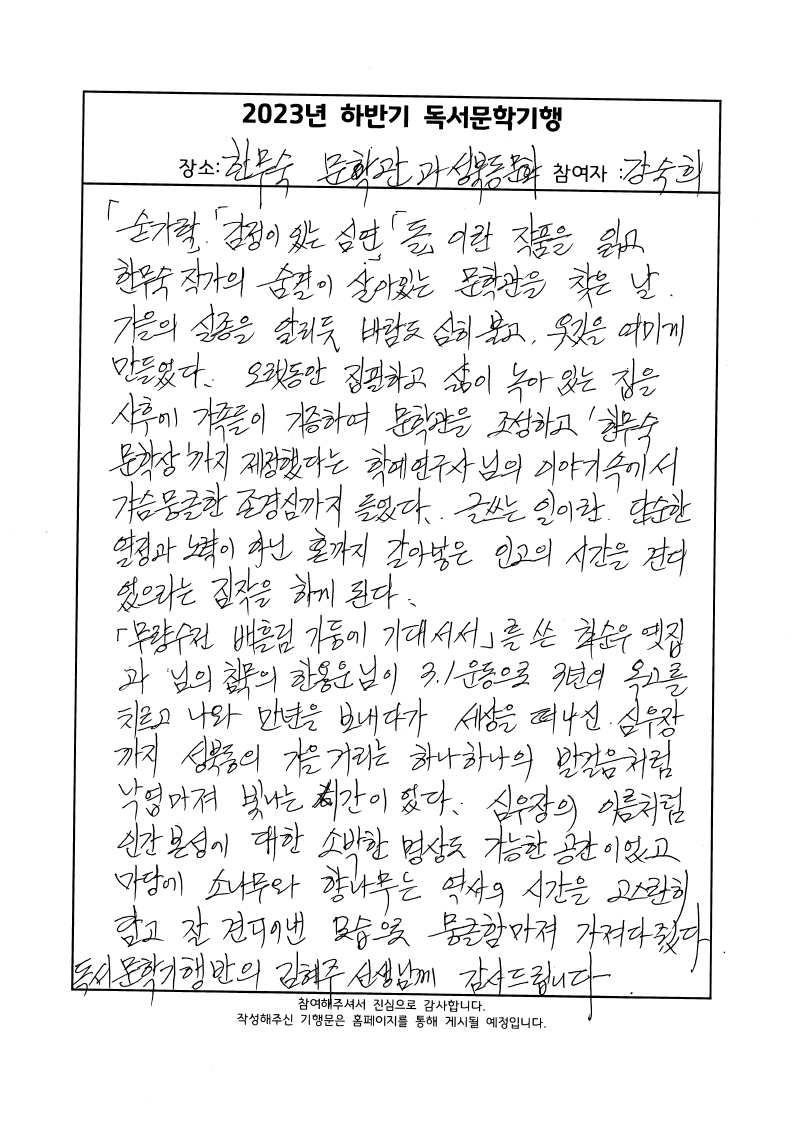 2023년 하반기 독서문학기행
장소: 한무숙 문학관과 성북동문학 참여자 : 강숙희
「손가락」「감정이 있는 심연」「돌」이란 작품을 읽고
한무숙 작가의 숨결이 살아있는 문학관을 찾은 날.
가을의 실종을 알리듯 바람도 심히 불고, 옷깃을 여미게
만들었다. 오랫동안 집필하고 삶이 녹아 있는 집을
사후에 가족들이 기증하여 문학관을 조성하고 '한무숙
문학상'까지 제정했다는 학예연구사님의 이야기속에서
가슴뭉클한 존경심까지 들었다. 글쓰는 일이란 단순한
열정과 노력이 아닌 혼까지 갈아넣은 인고의 시간을 견디
었으리라는 짐작을 하게 된다.
「무량수전 배흘림 기둥에 기대서서」를 쓴 최순우 옛집
과 님의 침묵의 한용운님이 3.1운동으로 3년의 옥고를
치르고 나와 만년을 보내다가 세상을 떠나신 심우장
까지 성북동의 가을 거리는 하나하나의 발걸음처럼
낙엽마저 빛나는 시간이 었다. 심우장의 이름처럼
인간본성에 대한 소박한 명상도 가능한 공간이었고
마당에 소나무와 향나무는 역사의 시간을 고스란히
참고 잘 견디어낸 모습으로 뭉클함마져 가져다줬다
독서문학기행반의 김혜주 선생님께 감사드립니다
참여해주셔서 진심으로 감사합니다.
작성해주신 기행문은 홈페이지를 통해 게시될 예정입니다.